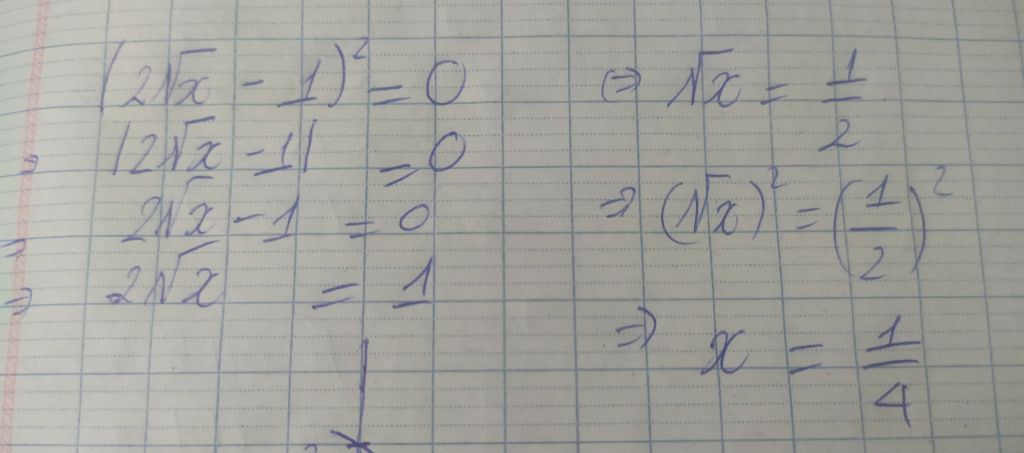 (2√x - 1)² = 0
⇒ |2√x - 1| = 0
⇒ 2√x - 1 = 0
⇒ 2√x = 1
⇒ √x = 1/2
⇒ (√x)² = (1/2)²
⇒ x = 1/4